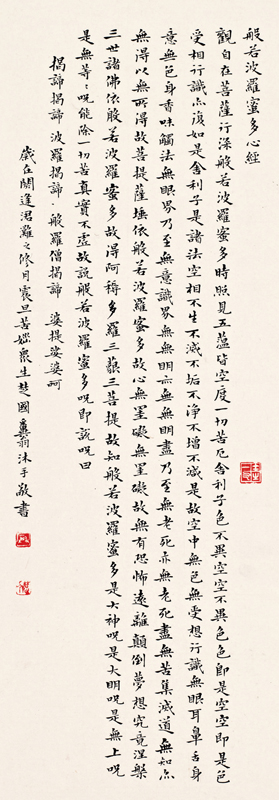 般若波羅蜜多心經
觀自在菩薩行深般若波羅蜜多時照見五蘊皆空度一切苦厄舍利子色不異空空不異色色即是空空即是色
受想行識亦復如是舍利子是諸法空相不生不滅不垢不淨不增不減是故空中無色無受想行識無眼耳鼻舌身
意無色身香味觸法無眼界乃至無意識界無無明亦無無明盡乃至無老死亦無老死盡無苦集滅道無知亦
無得以無所得故菩提薩埵依般若波羅蜜多故心無罣礙無罣礙故無有恐怖遠離顛倒夢想究竟涅槃
三世諸佛依般若波羅蜜多故得阿耨多羅三藐三菩提故知般若波羅蜜多是大神呪是大明呪是無上呪
是無等々呪能除一切苦真實不虛故說般若波羅蜜多呪即說呪曰
揭諦揭諦 波羅揭諦 般羅僧揭諦 婆提娑婆呵
歲在閼逢涒灘之修月震旦苦惱眾生楚國糞翁沐手敬書